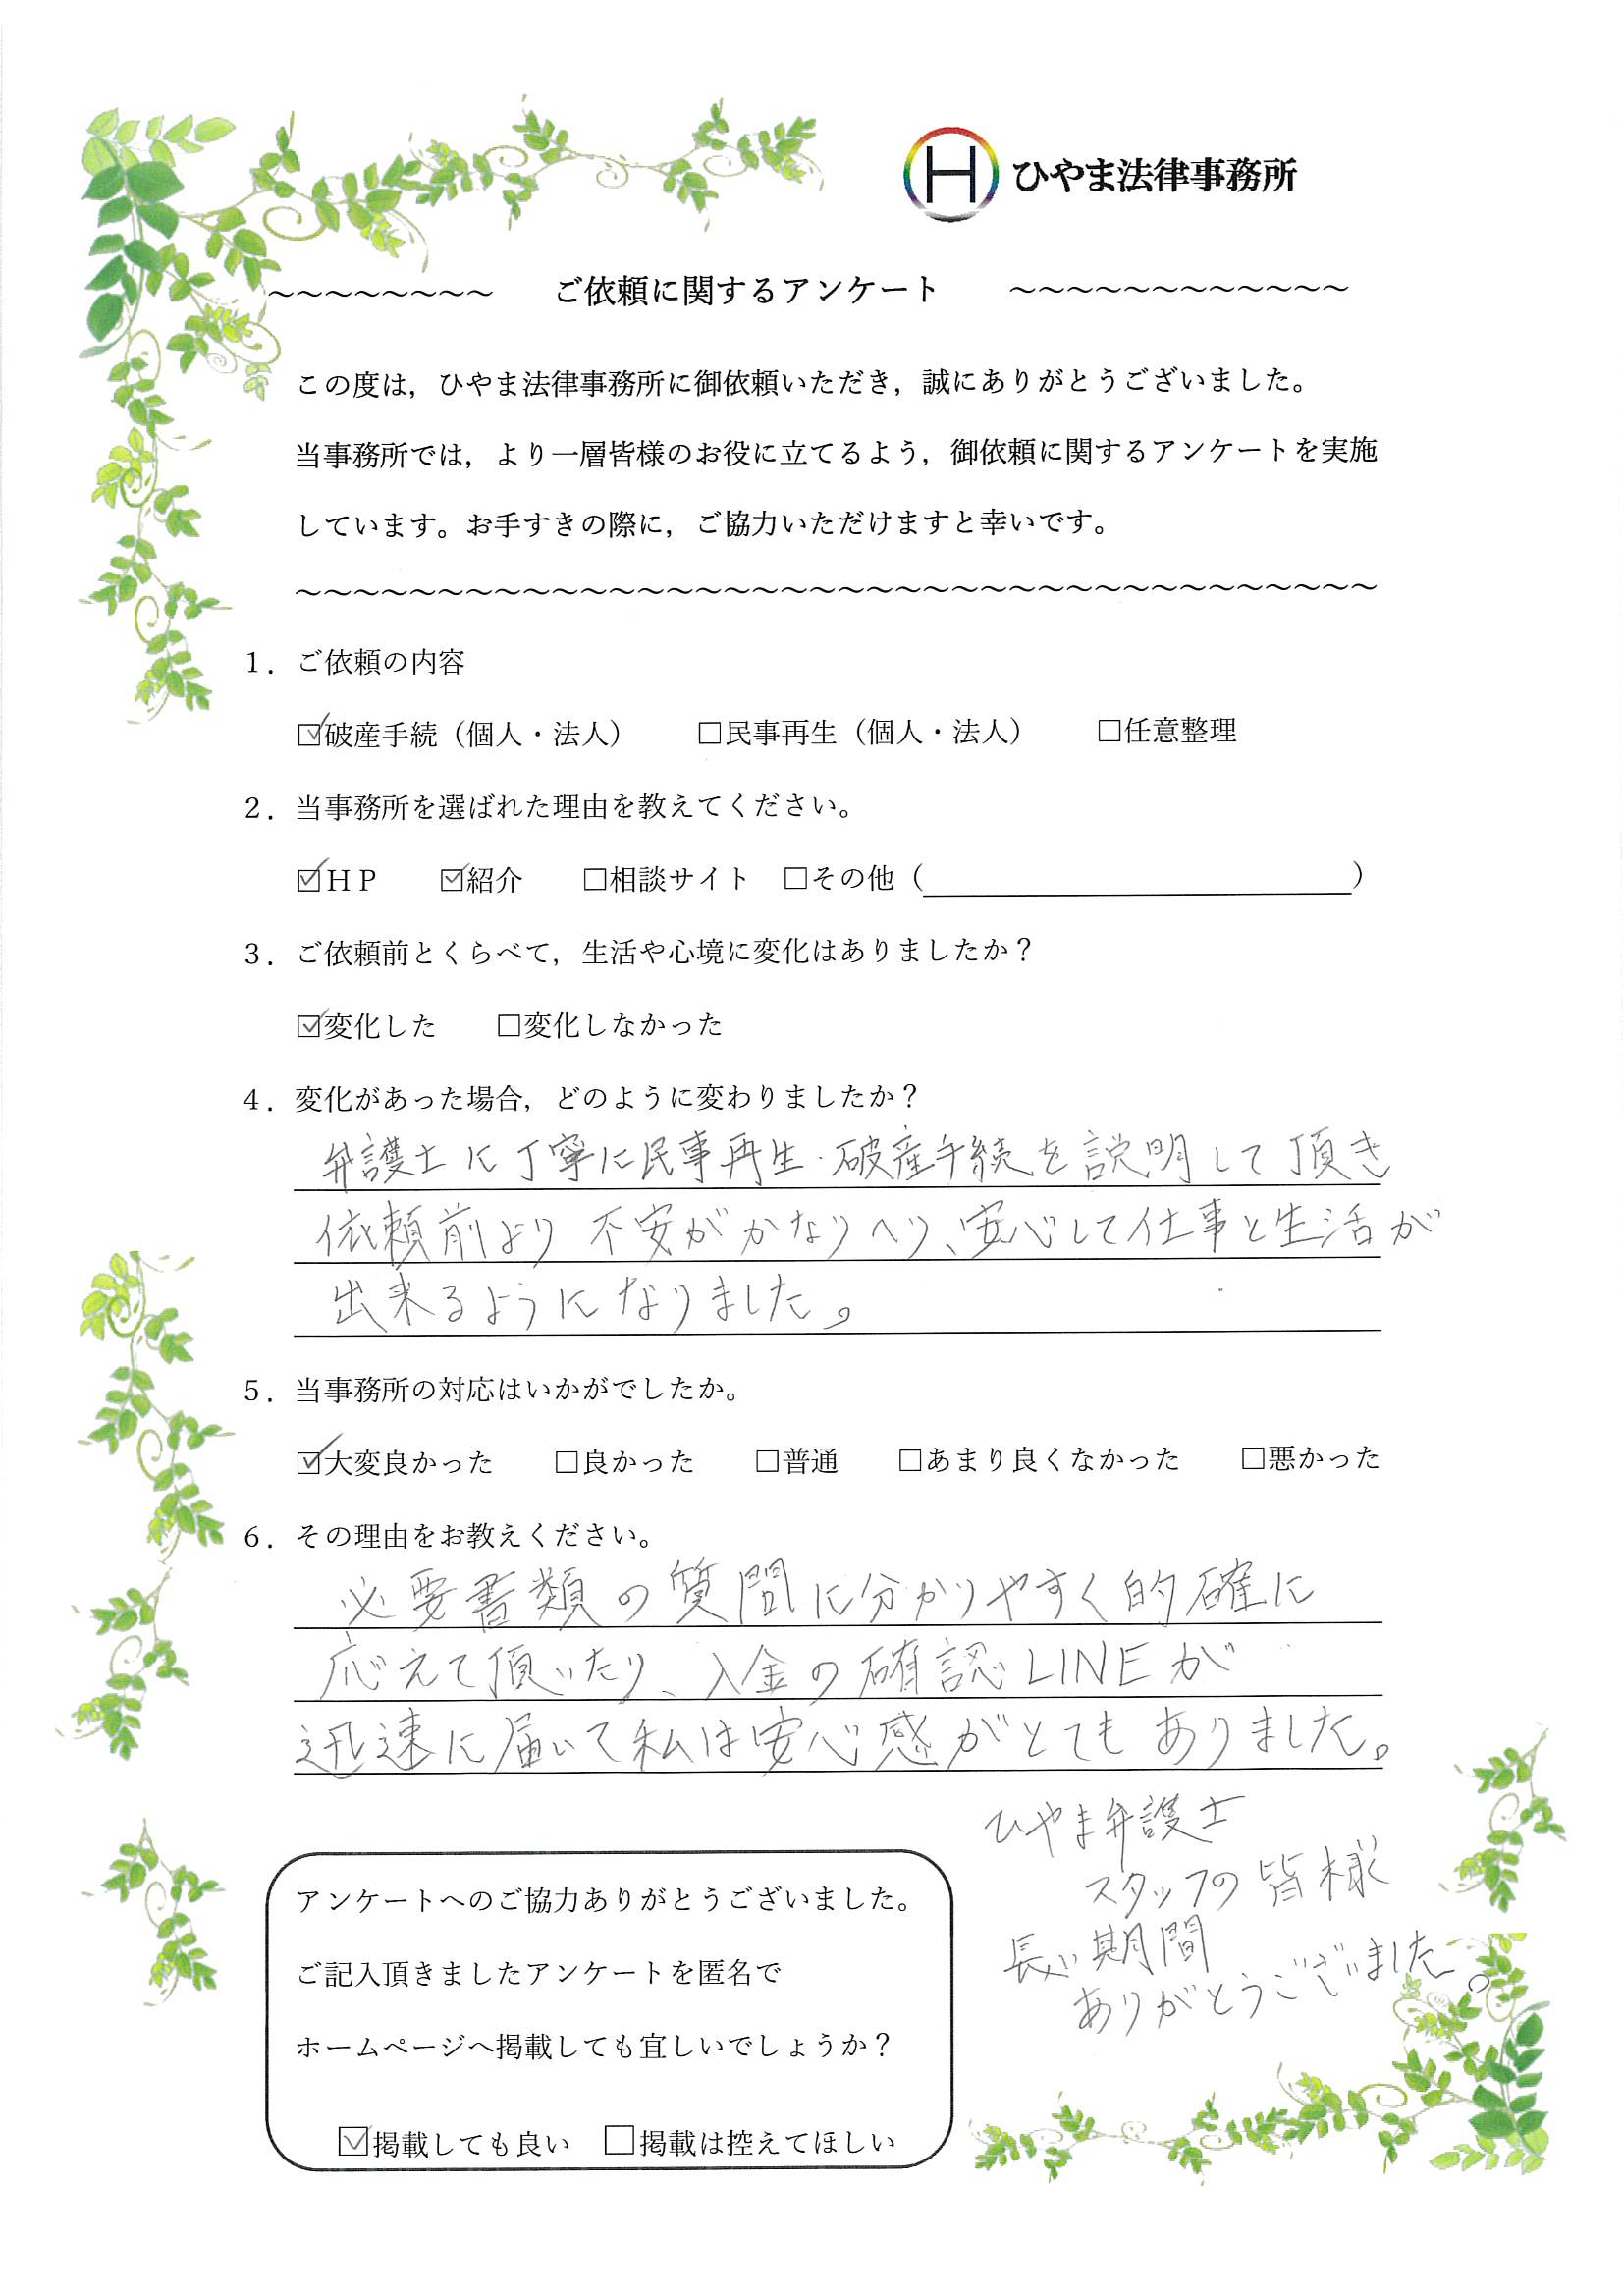 H ひやま法律事務所
～～～～～～～～ ご依頼に関するアンケート ～～～～～～～～～～～～
この度は，ひやま法律事務所に御依頼いただき，誠にありがとうございました。
当事務所では，より一層皆様のお役に立てるよう，御依頼に関するアンケートを実施
しています。お手すきの際に，ご協力いただけますと幸いです。
～～～～～～～～～～～～～～～～～～～～～～～～～～～～～～～～～～～～～～
１．ご依頼の内容
☑破産手続（個人・法人） □民事再生（個人・法人） □任意整理
２．当事務所を選ばれた理由を教えてください。
☑ＨＰ ☑紹介 □相談サイト □その他（ ）
３．ご依頼前とくらべて，生活や心境に変化はありましたか？
☑変化した □変化しなかった
４．変化があった場合，どのように変わりましたか？
弁護士に丁寧に民事再生・破産手続を説明して頂き
依頼前より不安がかなりへり、安心して仕事と生活が
出来るようになりました。
５．当事務所の対応はいかがでしたか。
☑大変良かった □良かった □普通 □あまり良くなかった □悪かった
６．その理由をお教えください。
必要書類の質問に分かりやすく的確に
応えて頂いたり、入金の確認LINEが
迅速に届いて私は安心感がとてもありました。
ひやま弁護士
スタッフの皆様
長い期間
ありがとうございました。
アンケートへのご協力ありがとうございました。
ご記入頂きましたアンケートを匿名で
ホームページへ掲載しても宜しいでしょうか？
☑掲載しても良い □掲載は控えてほしい